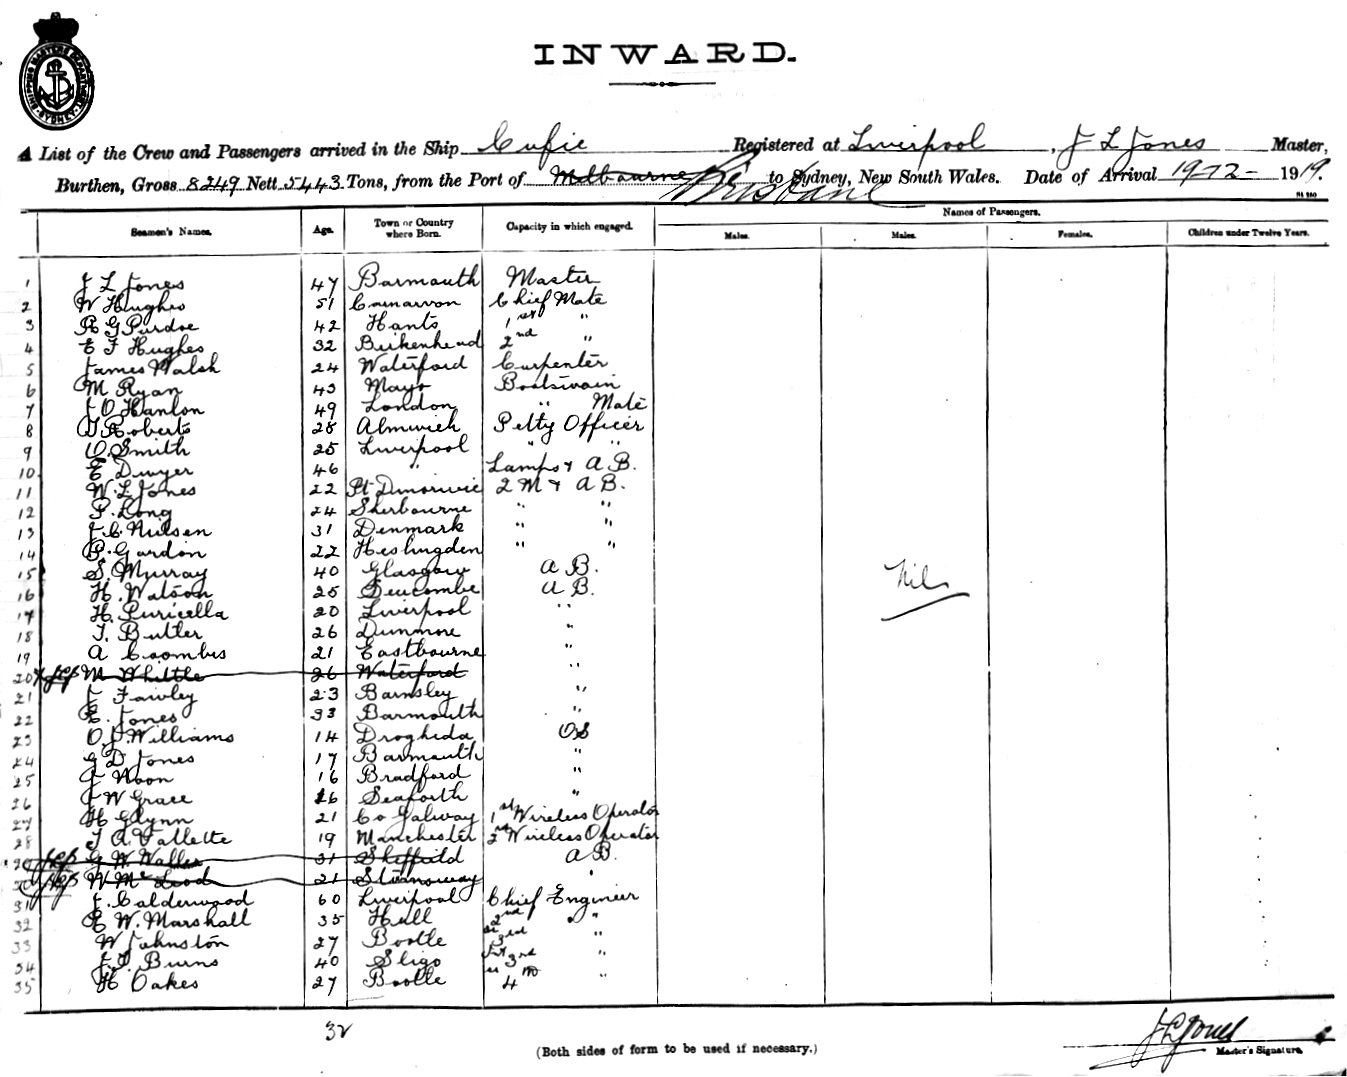 SHIPPING MASTER'S DEPARTMENT SYDNEY
INWARD.
A List of the Crew and Passengers arrived in the Ship Cufic Registered at Liverpool, J L Jones Master,
Burthen, Gross 8249 Nett 5443 Tons, from the Port of Melbourne Brisbane to Sydney, New South Wales. Date of Arrival 19-12-1919.
Names of Passengers.
Seamen's Names. Age. Town or Country where Born. Capacity in which engaged. Males. Males. Females. Children under Twelve Years.
1 J L Jones 47 Barmouth Master
2 W Hughes 51 Carnarvon Chief Mate
3 R G Purdoe 42 Hants 1st "
4 E F Hughes 32 Birkenhead 2nd "
5 James Walsh 24 Waterford Carpenter
6 M Ryan 43 Mayo Boatswain
7 J O'Hanlon 49 London " Mate
8 T Roberts 28 Almwich Petty Officer
9 O. Smith 25 Liverpool " "
10 E Dwyer 46 " Lamps & A B.
11 W. L Jones 22 Pt Dinorwic 2 M & A B.
12 P. Long 24 Sherbourne " "
13 J. C. Nielsen 31 Denmark " "
14 P. Gardon 22 Heslingden " "
15 S. Murray 40 Glasgow A B.
16 H. Watson 25 A B.
17 H. Puricella 20 Liverpool "
18 T. Butler 26 Dunmore "
19 A Coombes 21 Eastbourne "
20 M Whittle 26 Waterford "
21 J Fawley 23 Barnsley "
22 E. Jones 33 Barmouth "
23 O. J. Williams 14 Droghida OS
24 G D Jones 17 Barmouth "
25 J Noon 16 Bradford "
26 J W Grace 26 Seaforth "
27 H Glynn 21 Co Galway 1st Wireless Operator
28 T A Vallette 19 Manchester 2nd Wireless Operator
29 G W. Waller 31 Sheffield A B.
30 W McLeod 21 Stornoway "
31 J. Calderwood 60 Liverpool Chief Engineer
32 E W. Marshall 35 Hull 2nd "
33 W Johnston 27 Bootle 3rd "
34 J. T. Burns 40 Sligo 3rd "
35 H Oakes 27 Bootle 4th "
Nil
32
J L Jones
(Both sides of form to be used if necessary.)
Master's Signature.